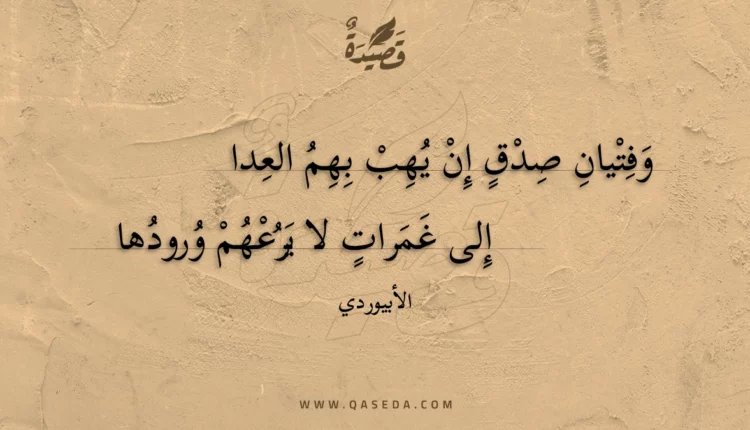 قَصِيْدَةٌ
وَفِتْيانِ صِدْقٍ إِنْ يُهِبْ بِهِمُ العِدا
إِلى غَمَراتٍ لا يَرُعْهُمْ وُرودُها
الأبيوردي
WWW.QASEDA.COM